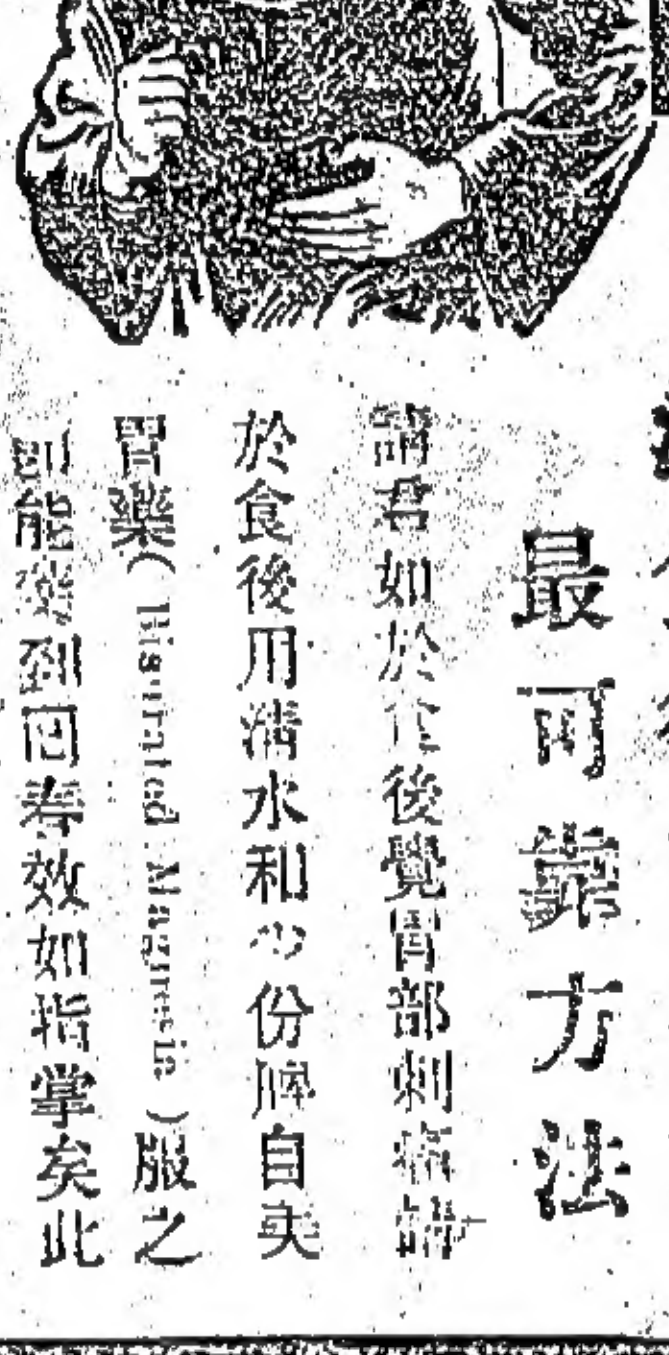 最可靠方法
諸君如於食後覺胃部刺痛請
於食後用清水和少份脾自美
胃藥(Bisurated Magnesia)服之
即能達到回春效如指掌矣此